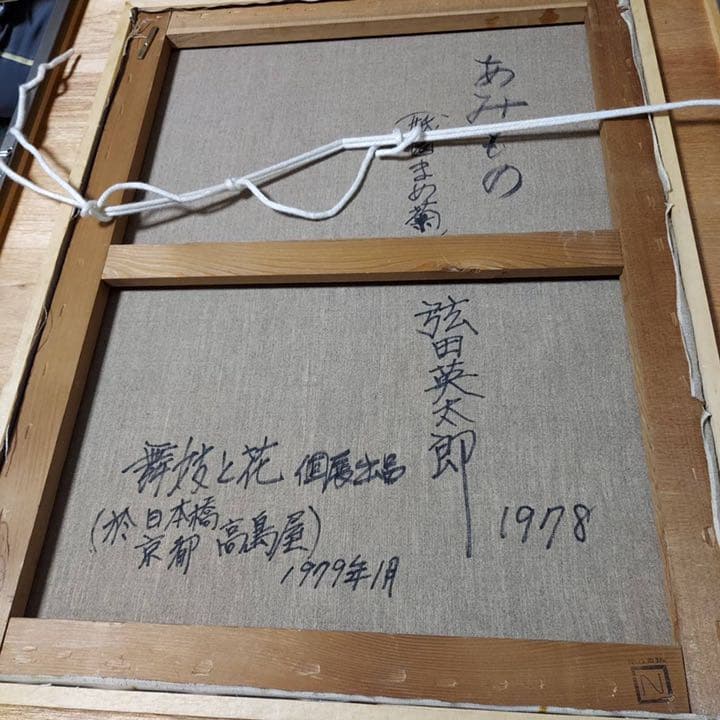 あみもの
(祇園まめ菊)
弦田英太郎
1978
舞妓と花 個展出品
(於 日本橋
京都 高島屋)
1979年1月
N